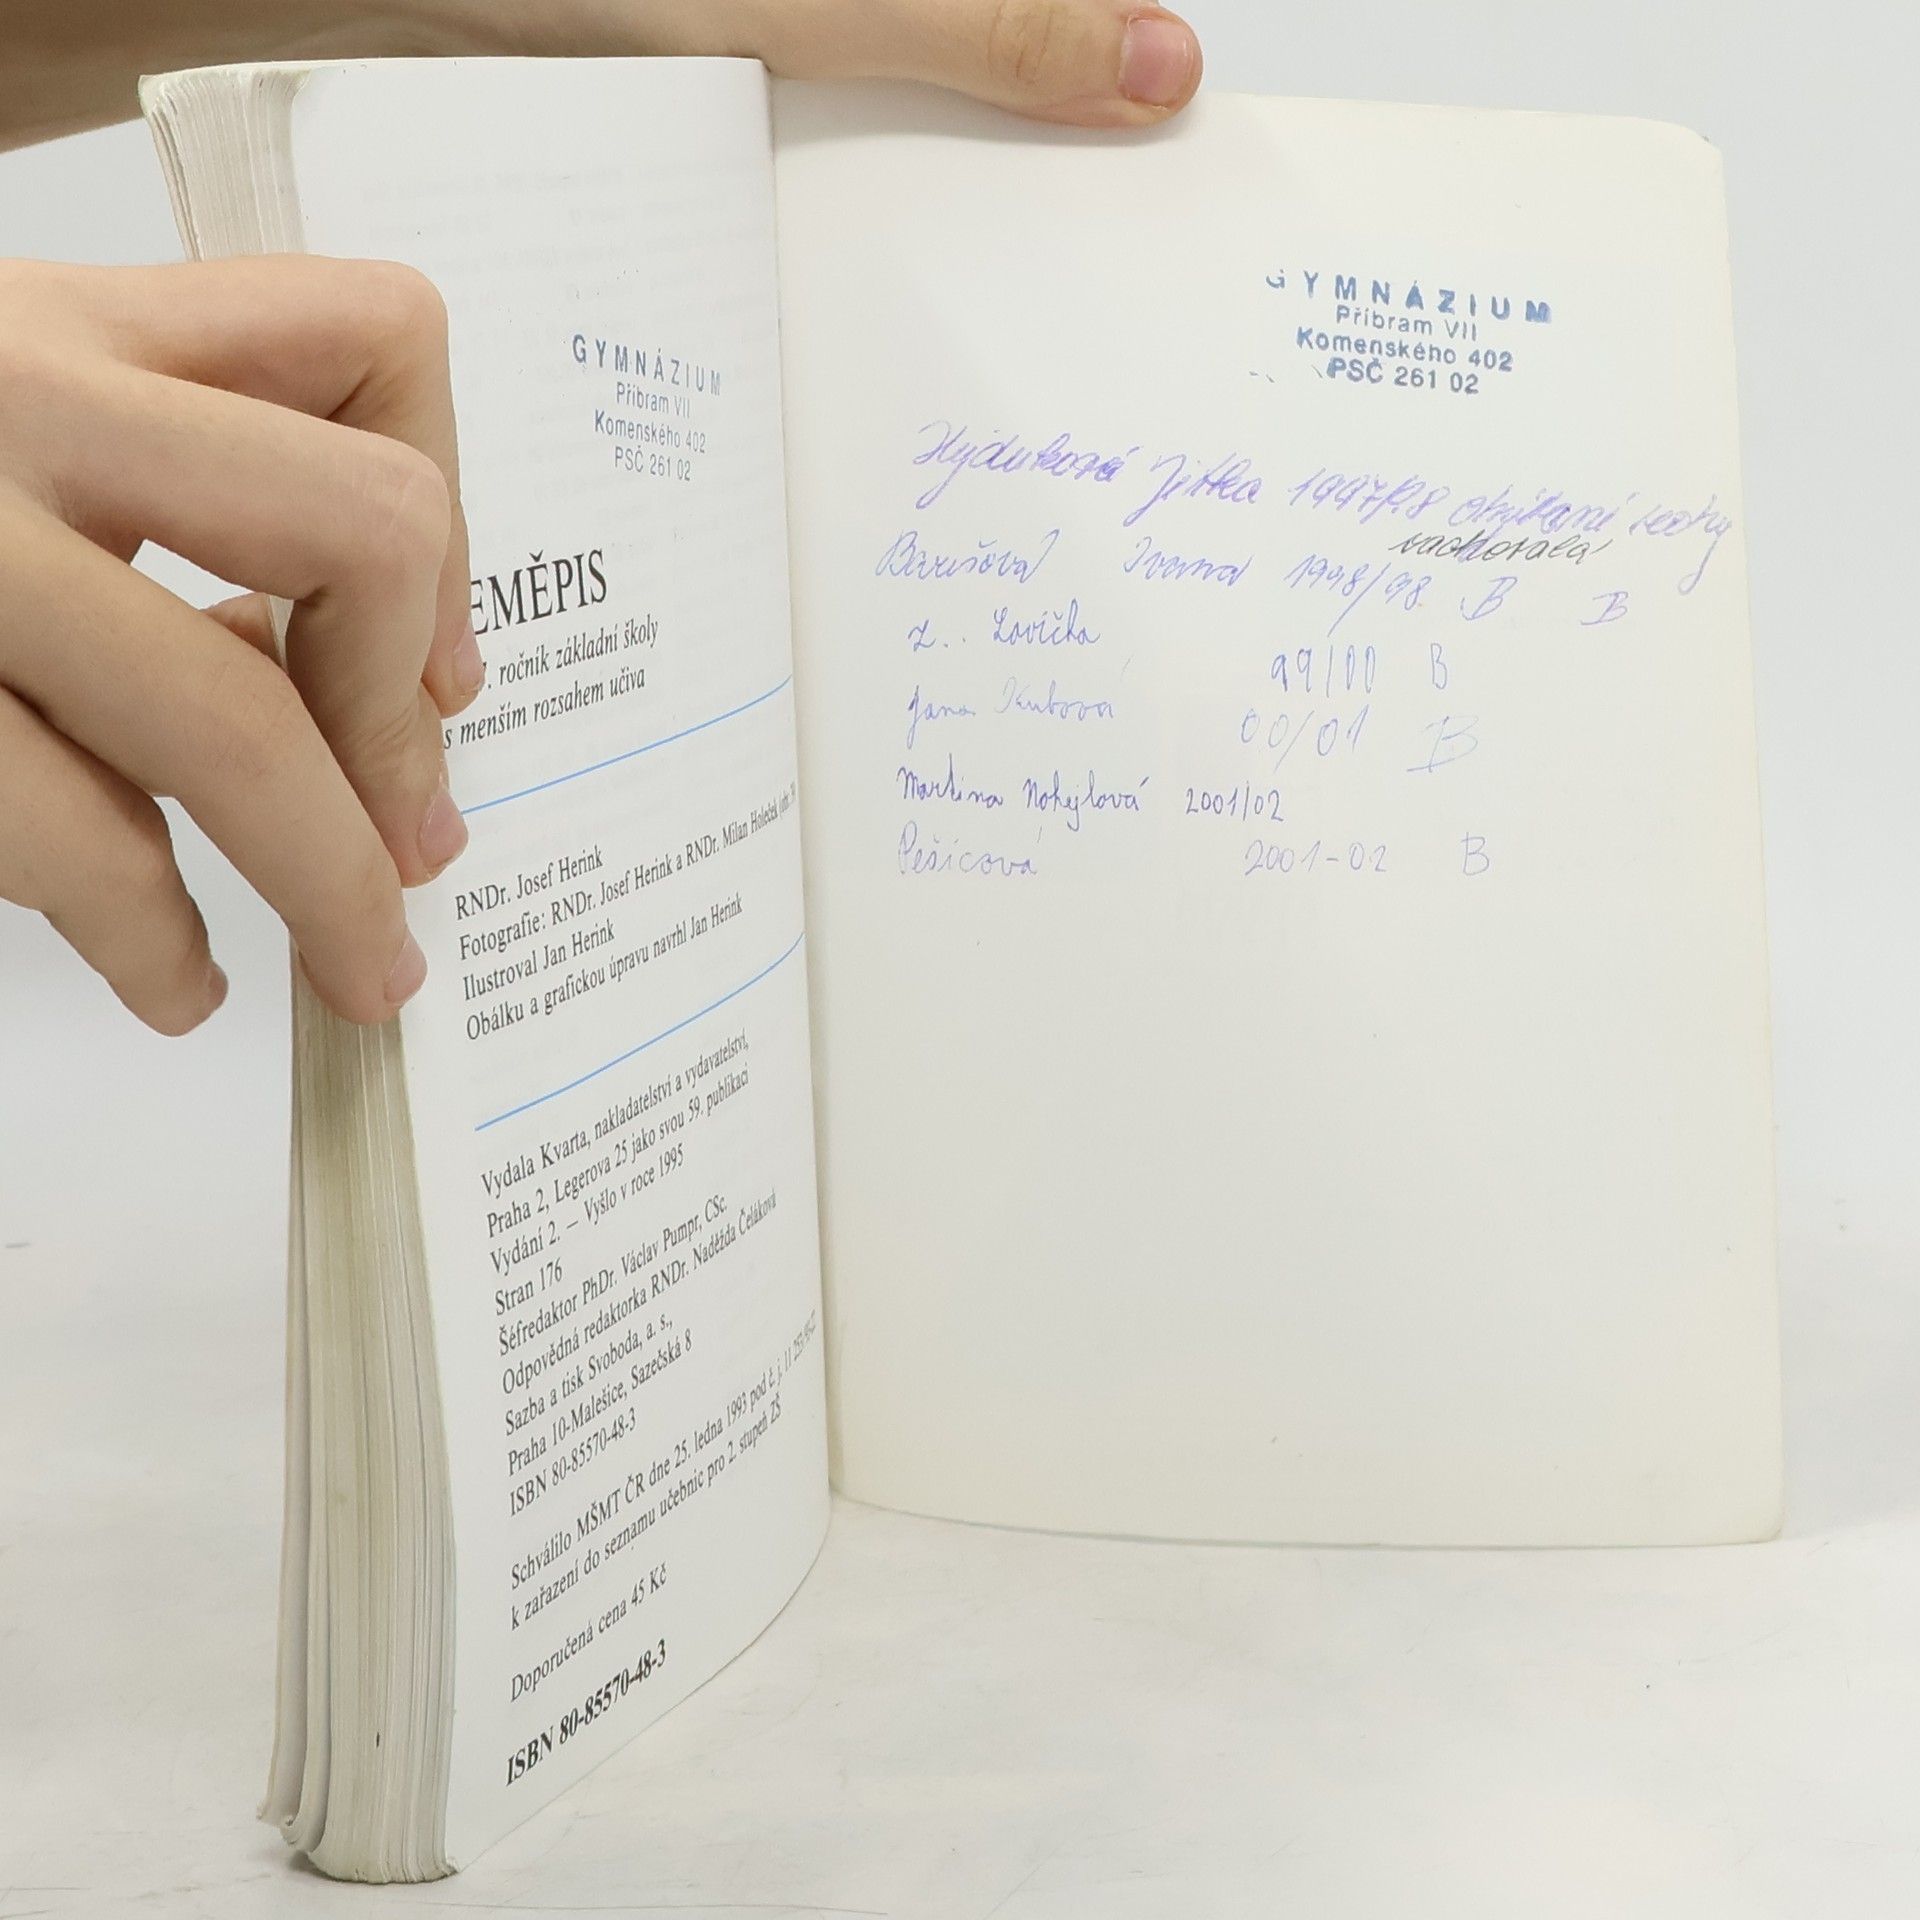 GYMNÁZIUM
Příbram VII
Komenského 402
PSČ 261 02
EMĚPIS
ročník základní školy
s menším rozsahem učiva
RNDr. Josef Herink
Fotografie: RNDr. Josef Herink a RNDr. Milan Holeček
Ilustroval Jan Herink
Obálku a grafickou úpravu navrhl Jan Herink
Vydala Kvarta, nakladatelství a vydavatelství,
Praha 2, Legerova 25 jako svou 59. publikaci
Vydání 2. – Vyšlo v roce 1995
Stran 176
Šéfredaktor PhDr. Václav Pumpr, CSc.
Odpovědná redaktorka RNDr. Naděžda Čeláková
Sazba a tisk Svoboda, a. s.,
Praha 10-Malešice, Sazečská 8
ISBN 80-85570-48-3
Schválilo MŠMT ČR dne 25. ledna 1993 pod č. j. 11
k zařazení do seznamu učebnic pro 2. stupeň ZŠ
Doporučená cena 45 Kč
ISBN 80-85570-48-3
GYMNÁZIUM
Příbram VII
Komenského 402
PSČ 261 02
Hejduková Jitka 1997/98 rohy
zachovalá
Ivana 1998/98 B B
Z. Lavička 99/00 B
Jana Kubová 00/01 B
Martina Nohejlová 2001/02
Pešicová 2001-02 B